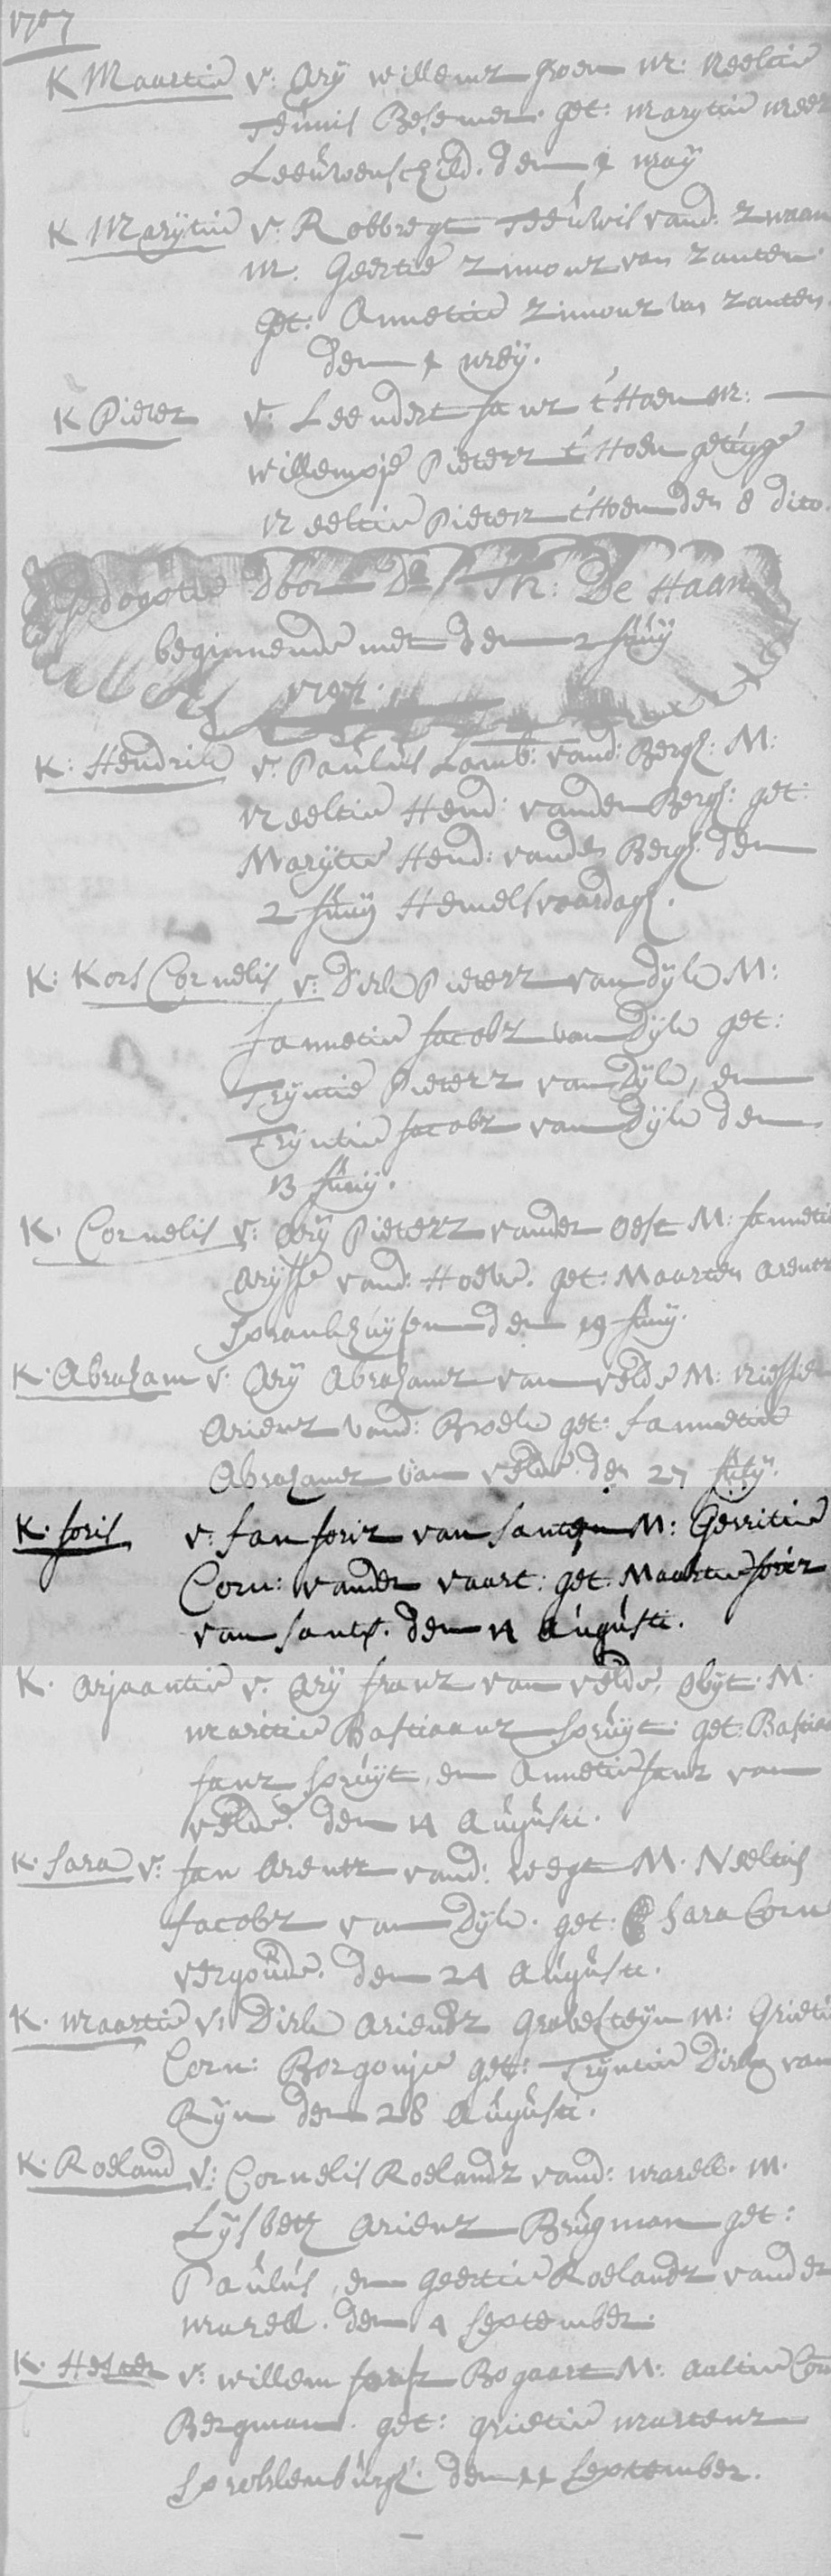 1707
K Maartie v: Arij willemz groen m: Neeltie
Teunis Besemer. get: marijtie meer
Leeuwenschild. den 1 meij
K Marijtie v: Robbregt Teeúwis vand: Zwaan
m: Geertie Zimonz van Zanten.
get: Annetie Zimonz van Zanten.
den 1 meij.
K Pieter v: Leendert Janz 't Hoen m:
willempje Pieterz 't Hoen getúijge
Neeltie Pieterz 't Hoen den 8 dito.
gedoopte door Ds Th: De Haan
beginnende met den 2 Júnij
1707.
K: Hendrik v: Paúlús Lamb: vand: Bergh: M:
Neeltie Hend: vanden Bergh: get:
Marijtie Hend: vanden Bergh. den
2 Júnij Hemelsvaardagh.
K: Kors Cornelis v: Dirk Pieterz van Dijk M:
Jannetie Jacobz van Dijk get:
Trijntie Pieterz van Dijk, en
Trijntie Jacobz van Dijk den
13 Júnij.
K. Cornelis v: Arij Pieterz vander Oest M: Jannetie
Arijsse vand: Hoek. get: Maarten Arentz
Spronkhúijsen den 19 Júnij.
K. Abraham v: Arij Abrahamz van velde M:
Arienz vand: Broek get: Jannetie
Abrahamz van velde. den 27 Júlij.
K. Joris v: Jan Joriz van Santen M: Gerritie
Corn: vander vaart: get: Maartie Joriz
van Sant. den 14 Aúgústi.
K. Arjaantie v. Arij Franz van velde, obijt. M.
maritie Bastiaanz Sprúijt: get: Bastiaan
Janz Sprúijt, en Annetie Janz van
velde. den 14 Aúgústi.
K. Sara v: Jan Arentz vand: wegt M. Neeltie
Jacobz van Dijk. get: Sara Corn
vergoúde. den 24 Aúgústi.
K. maartie v: Dirk Arientz Gravesteijn M: Grietie
Corn: Borgonje get: Trijntie Dirkz van
Rijn den 28 Aúgústi.
K. Roeland v: Cornelis Roelandz vand: marell. m.
Lijsbeth Arienz Brúgman get:
Paúlús, en Geertie Roelandz vander
marell. den 4 September.
K. Hester v: willem Bogaart M: Aaltie Corn
Bergman. get: grietie martenz
den 11 September.